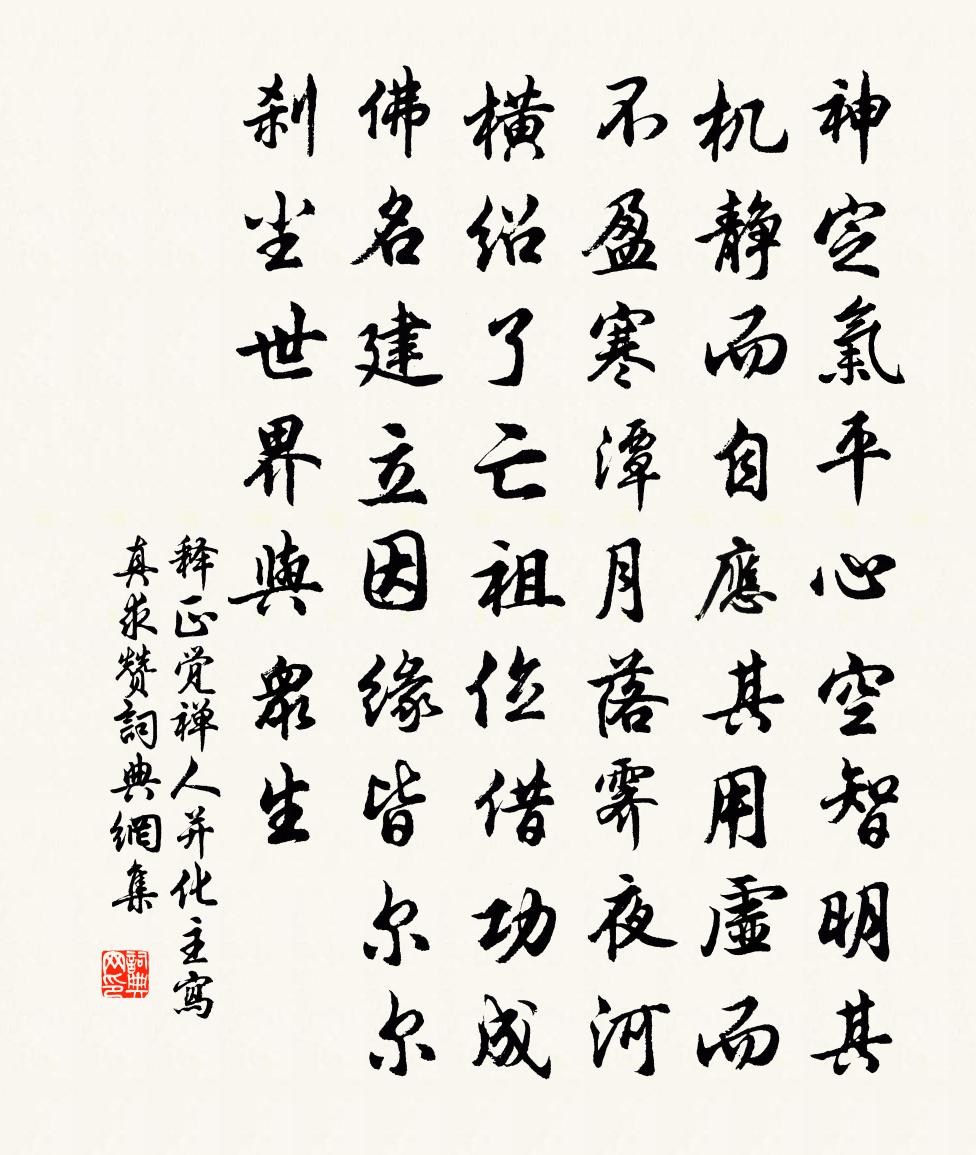 神定氣平心空智明其
机靜而自應其用虛而
不盈寒潭月落霽夜河
橫紹了亡祖位借功成
佛名建立因緣皆尔尔
刹尘世界與眾生
释正觉禅人并化主寫
真求赞詞典網集
詞典
网印